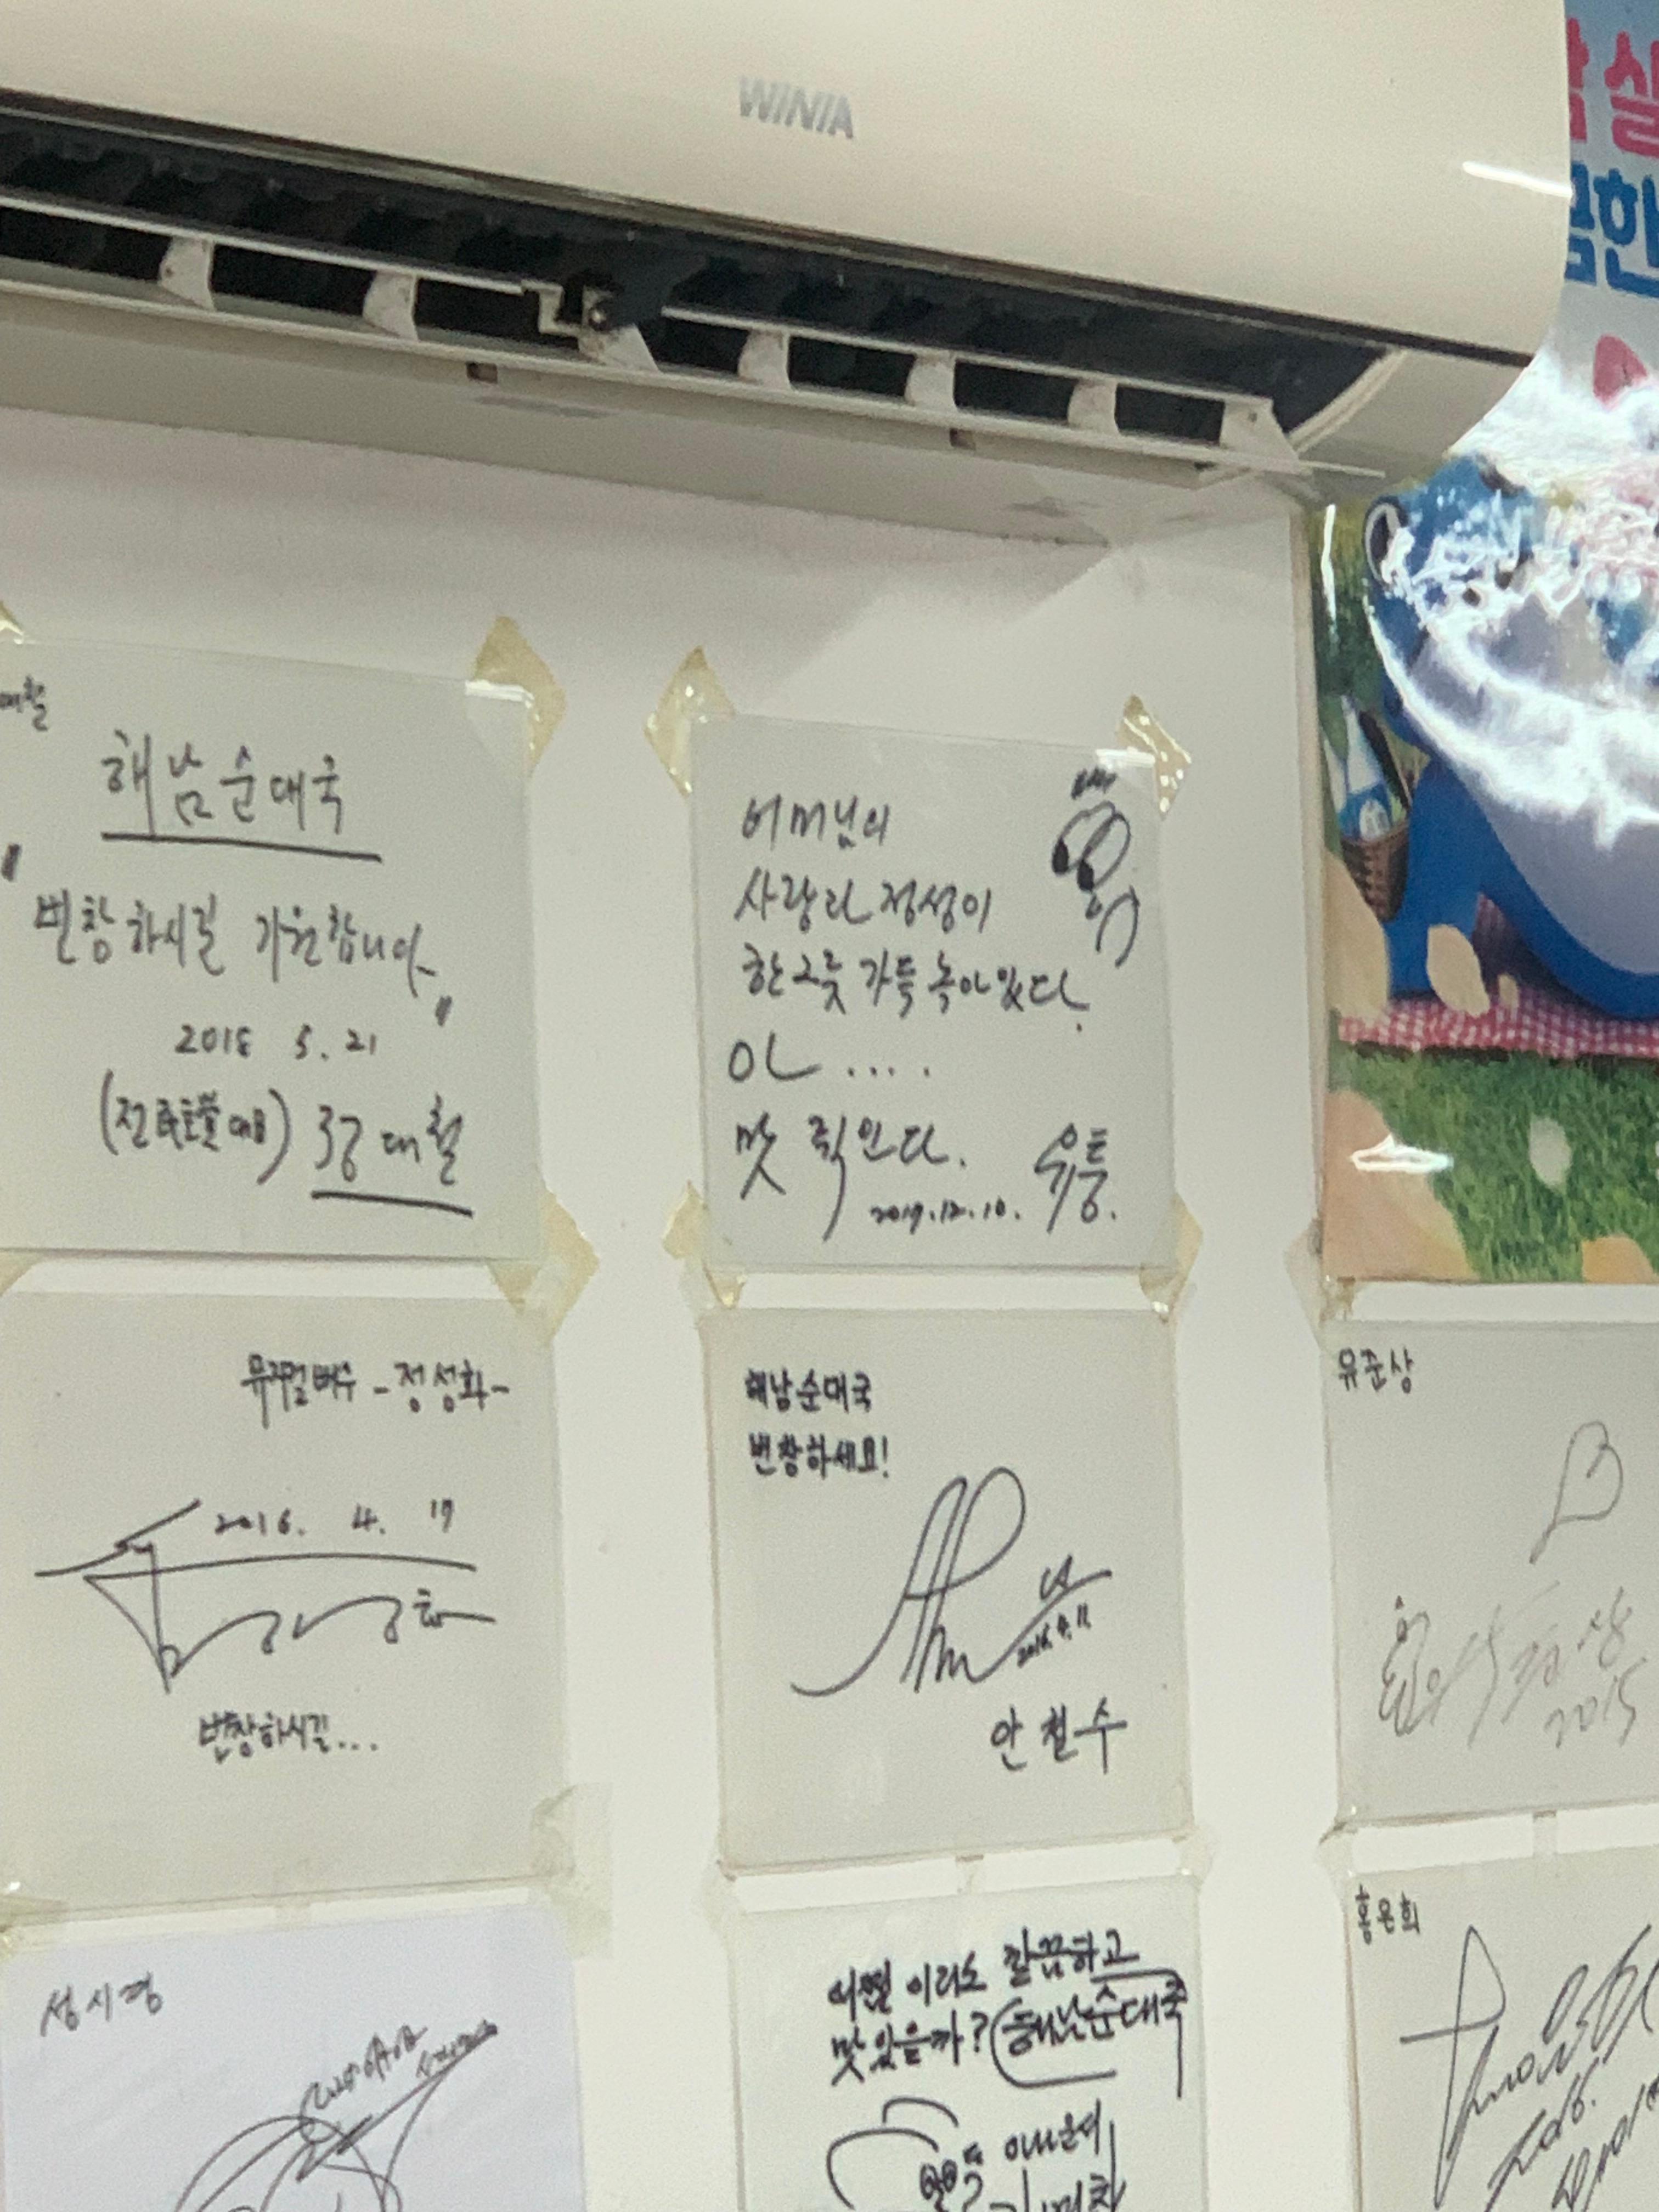 WINIA
실
한
대철
해남순대국
"번창하시길 기원합니다"
2018 5.21
강대철
어머님의
사랑과 정성이
한그릇 가득 녹아있다.
아....
맛 죽인다.
2019.12.10. 유퉁.
뮤지컬배우 -정성화-
2016. 4. 17
번창하시길...
해남순대국
번창하세요!
안철수
유준상
2015
성시경
어쩜 이리도 깔끔하고
맛있을까? 해남순대국
홍은희